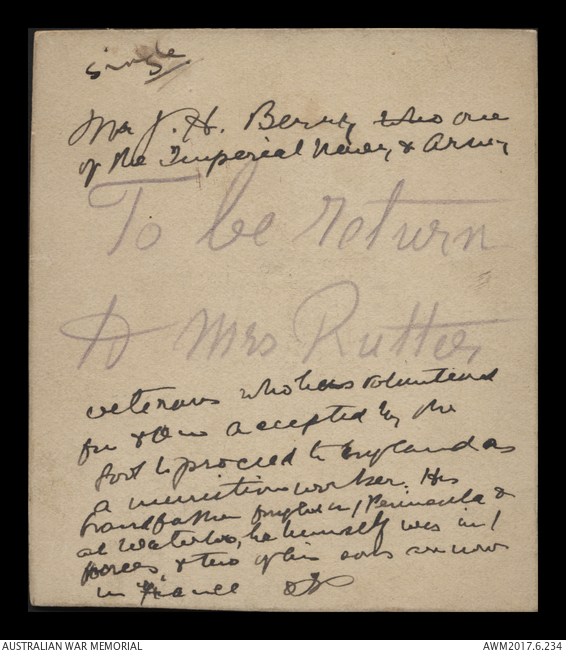 single
Mr J. H. Berry, who one
of the Imperial Navy & Army
To be return
to Mrs Rutter
veterans who has volunteered
for & been accepted by the
Govt to proceed to England as
a munition worker. His
Grandfather fought in / Peninsula &
at Waterloo, he himself was in /
forces, & two of his sons are now
in France
AUSTRALIAN WAR MEMORIAL
AWM2017.6.234